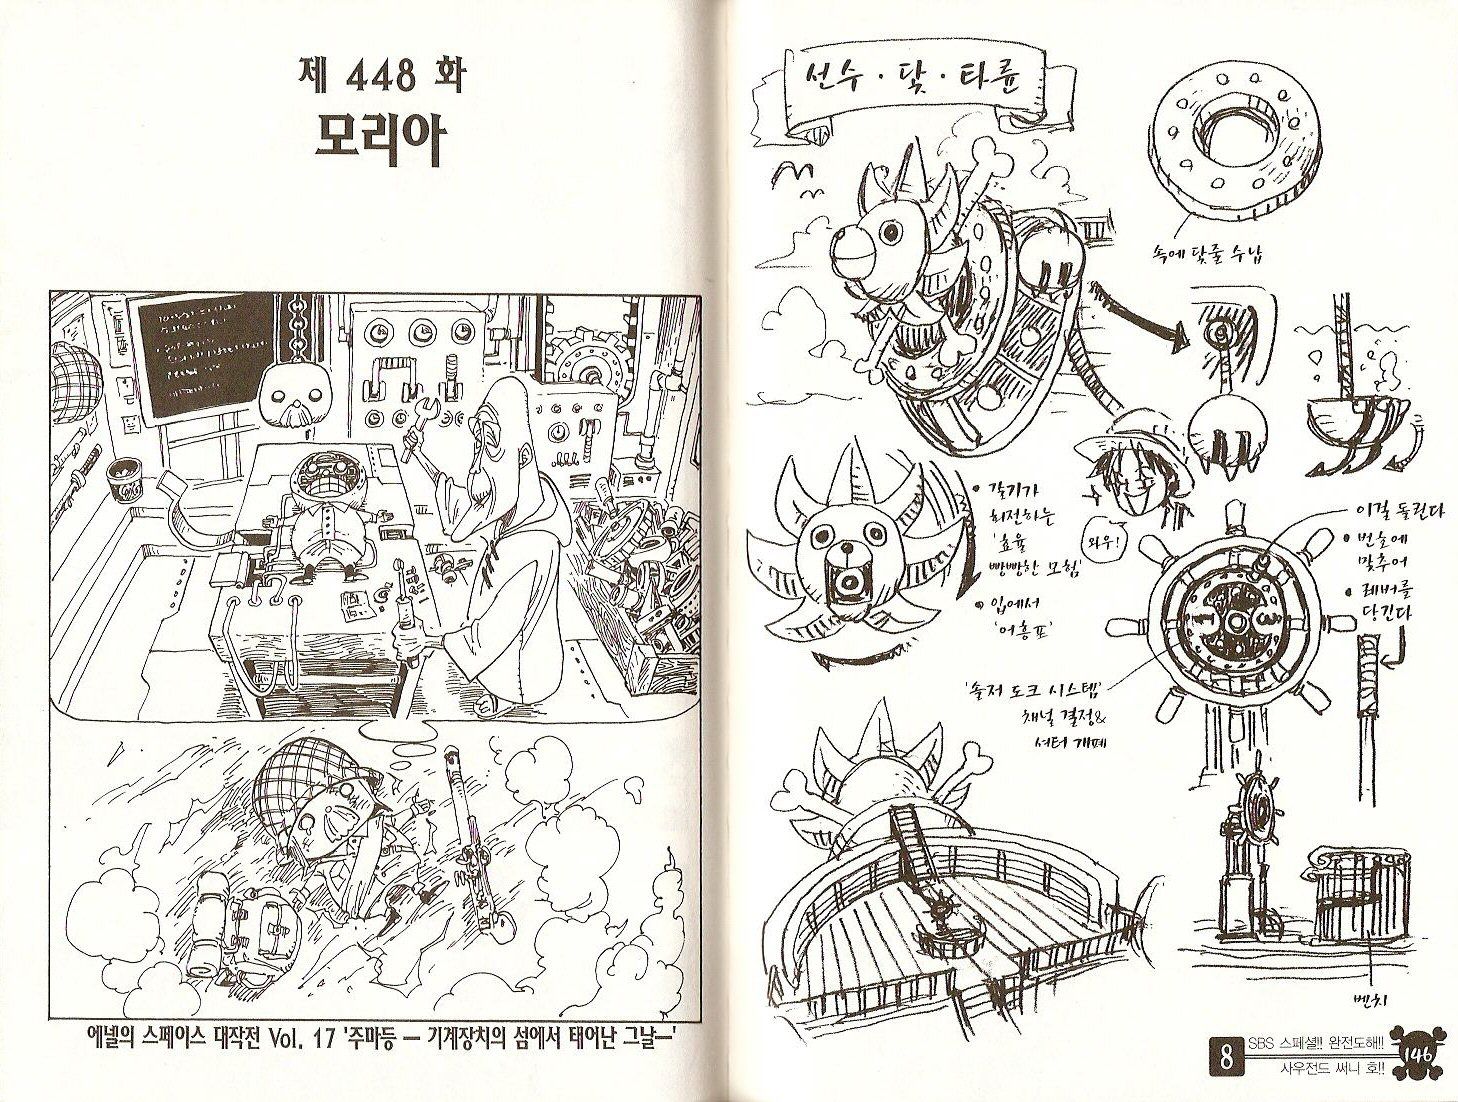 제 448 화
모리아
에넬의 스페이스 대작전 Vol. 17 '주마등 — 기계장치의 섬에서 태어난 그날—'
선수 · 닻 · 타륜
속에 닻줄 수납
• 갈기가
회전하는
'효율
빵빵한 모험'
• 입에서
'어흥포'
와우!
이걸 돌린다
• 번호에
맞추어
• 레버를
당긴다
'솔저 도크 시스템'
채널 결정&
셔터 개폐
벤치
8
SBS 스페셜!! 완전도해!!
사우전드 써니 호!!
146